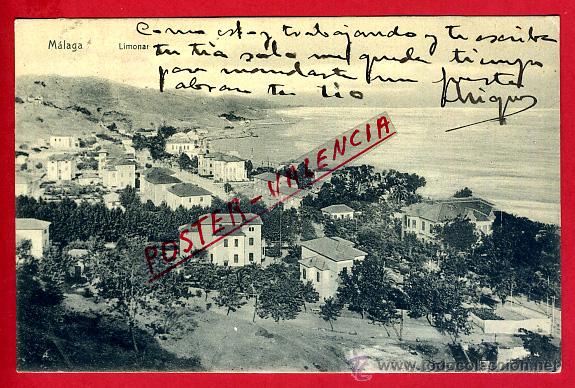 Málaga Limonar
Como estoy trabajando y te escribe
tu tia solo me queda tiempo
para mandarte un fuerte
abrazo tu tio
Enrique
POSTER-VALENCIA
todocoleccion.net